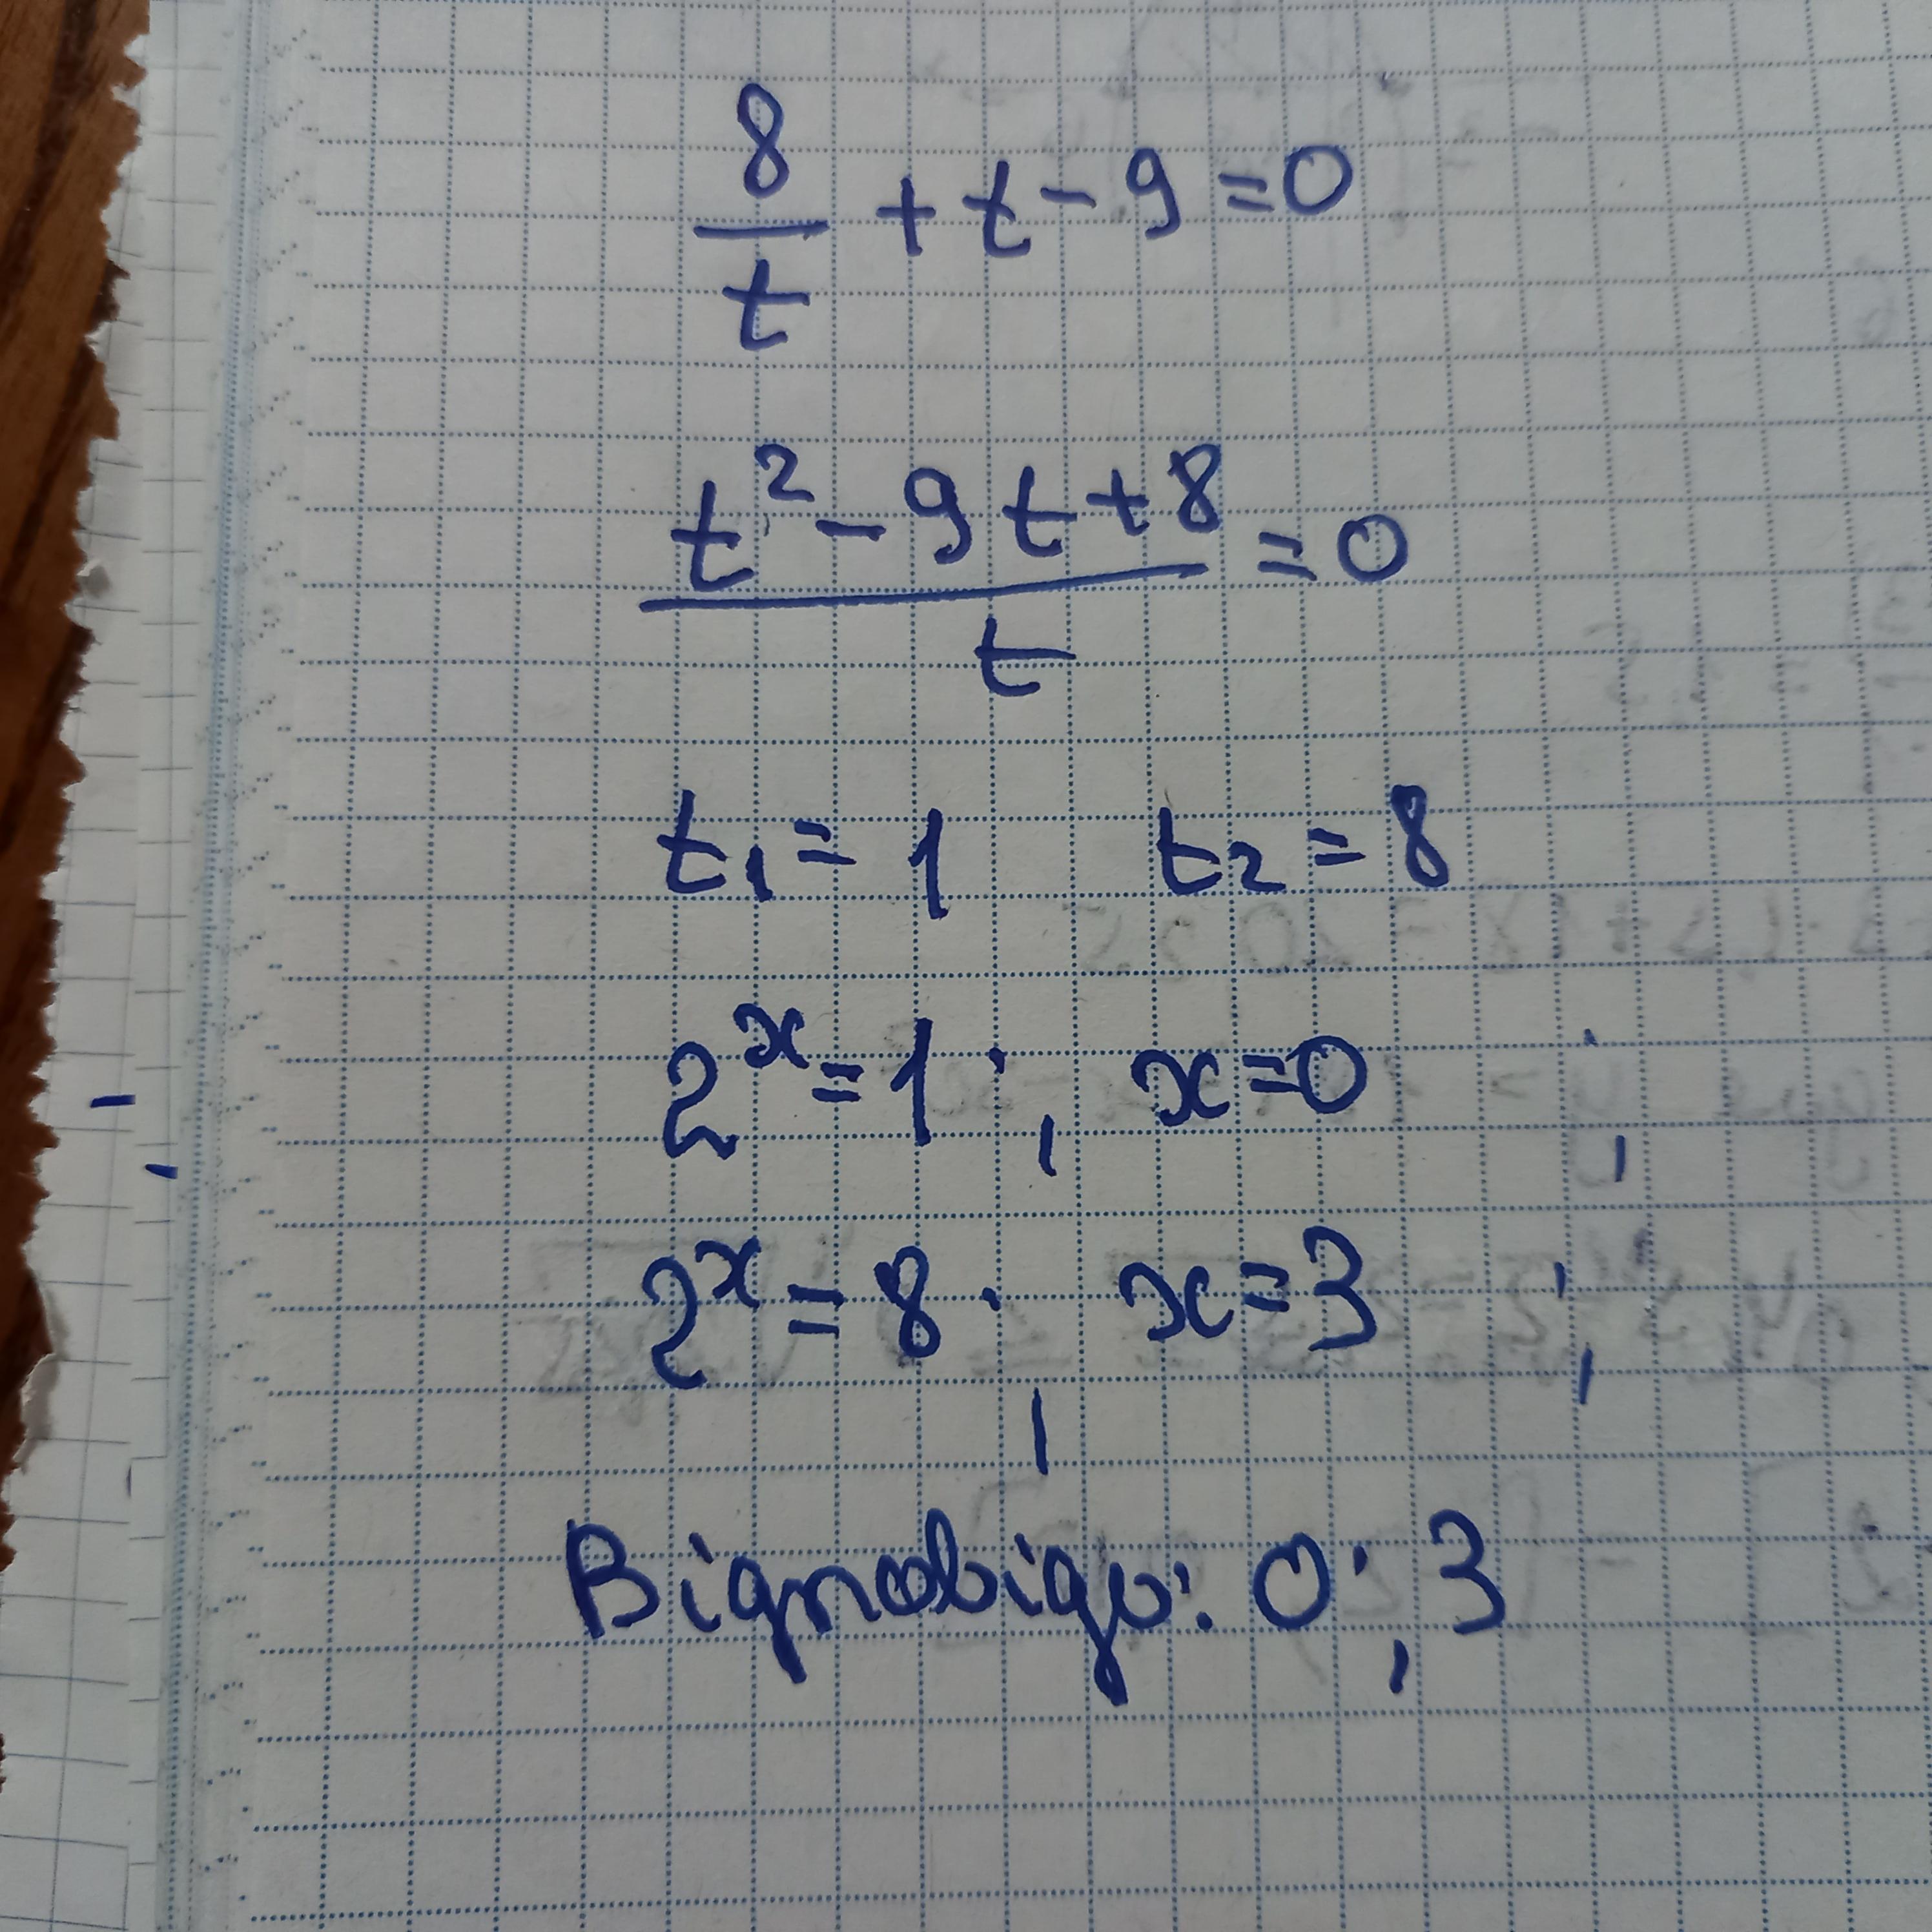 8/t + t - 9 = 0
(t² - 9t + 8)/t = 0
t₁ = 1 t₂ = 8
2ˣ = 1; x = 0
2ˣ = 8; x = 3
Відповідь: 0; 3